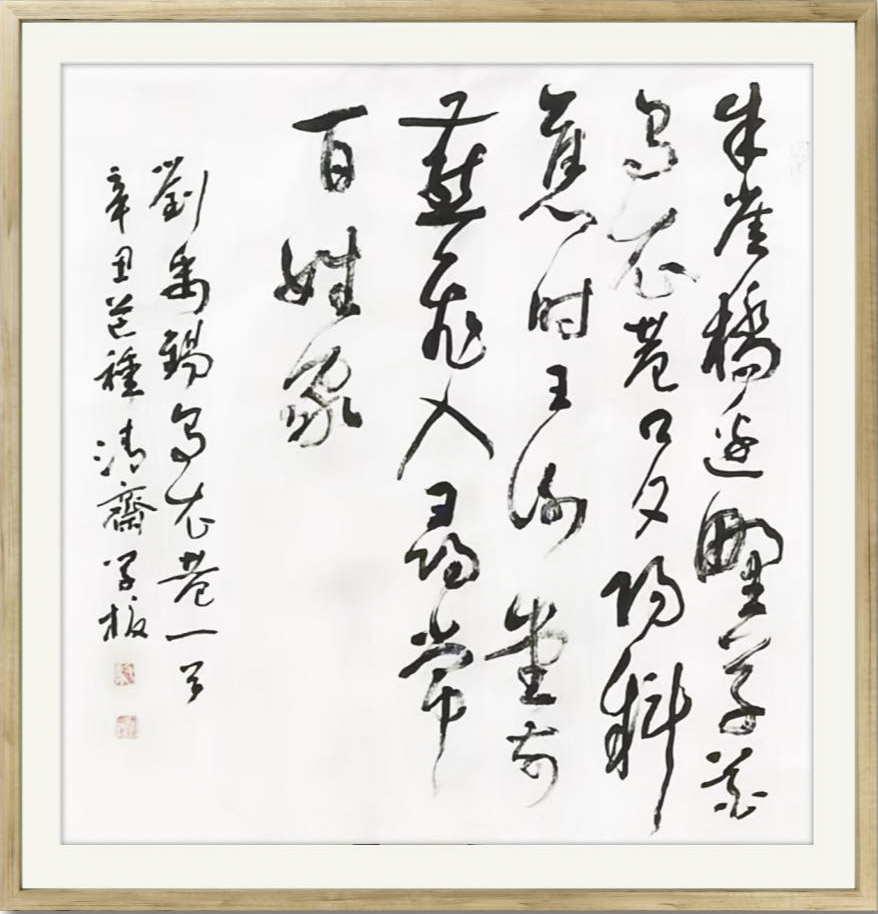 朱雀橋边野草花
烏衣巷口夕陽斜
舊时王谢堂前
燕飛入尋常
百姓家
劉禹錫烏衣巷一首
辛丑芒種清齋学